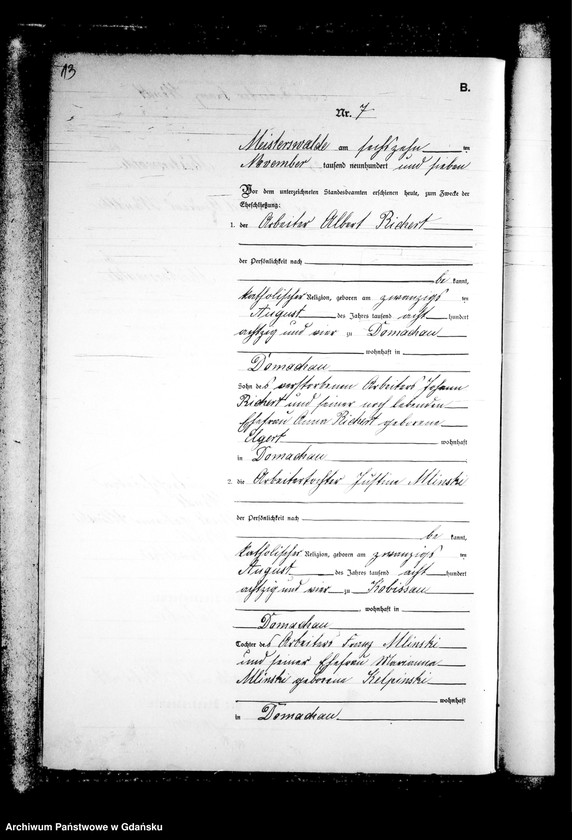 13
B.
Nr. 7
Meisterswalde am sechszehn ten
November tausend neunhundert und sieben
Vor dem unterzeichneten Standesbeamten erschienen heute, zum Zwecke der
Eheschließung:
1. der Arbeiter Albert Richert
der Persönlichkeit nach
be kannt,
katholischer Religion, geboren am zwanzigs ten
August des Jahres tausend acht hundert
achtzig und vier zu Domachau
, wohnhaft in
Domachau
Sohn des verstorbenen Arbeiters Johann
Richert und seiner noch lebenden
Ehefrau Anna Richert geborene
Elgert wohnhaft
in Domachau
2. die Arbeitertochter Justine Mlinski
der Persönlichkeit nach
be kannt,
katholischer Religion, geboren am zwanzigs ten
August des Jahres tausend acht hundert
achtzig und vier zu Kobissau
, wohnhaft in
Domachau
Tochter des Arbeiters Franz Mlinski
und seiner Ehefrau Marianna
Mlinski geborene Kelpinski
wohnhaft
in Domachau
Archiwum Państwowe w Gdańsku